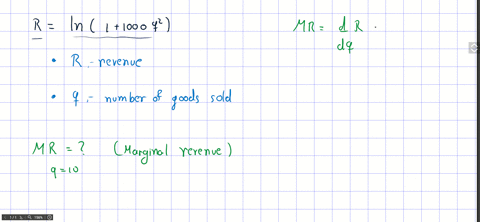 R = ln (1+1000 q²)
MR = d R
dq
• R :- revenue
• q :- number of goods sold
MR = ? (Marginal revenue)
q=10